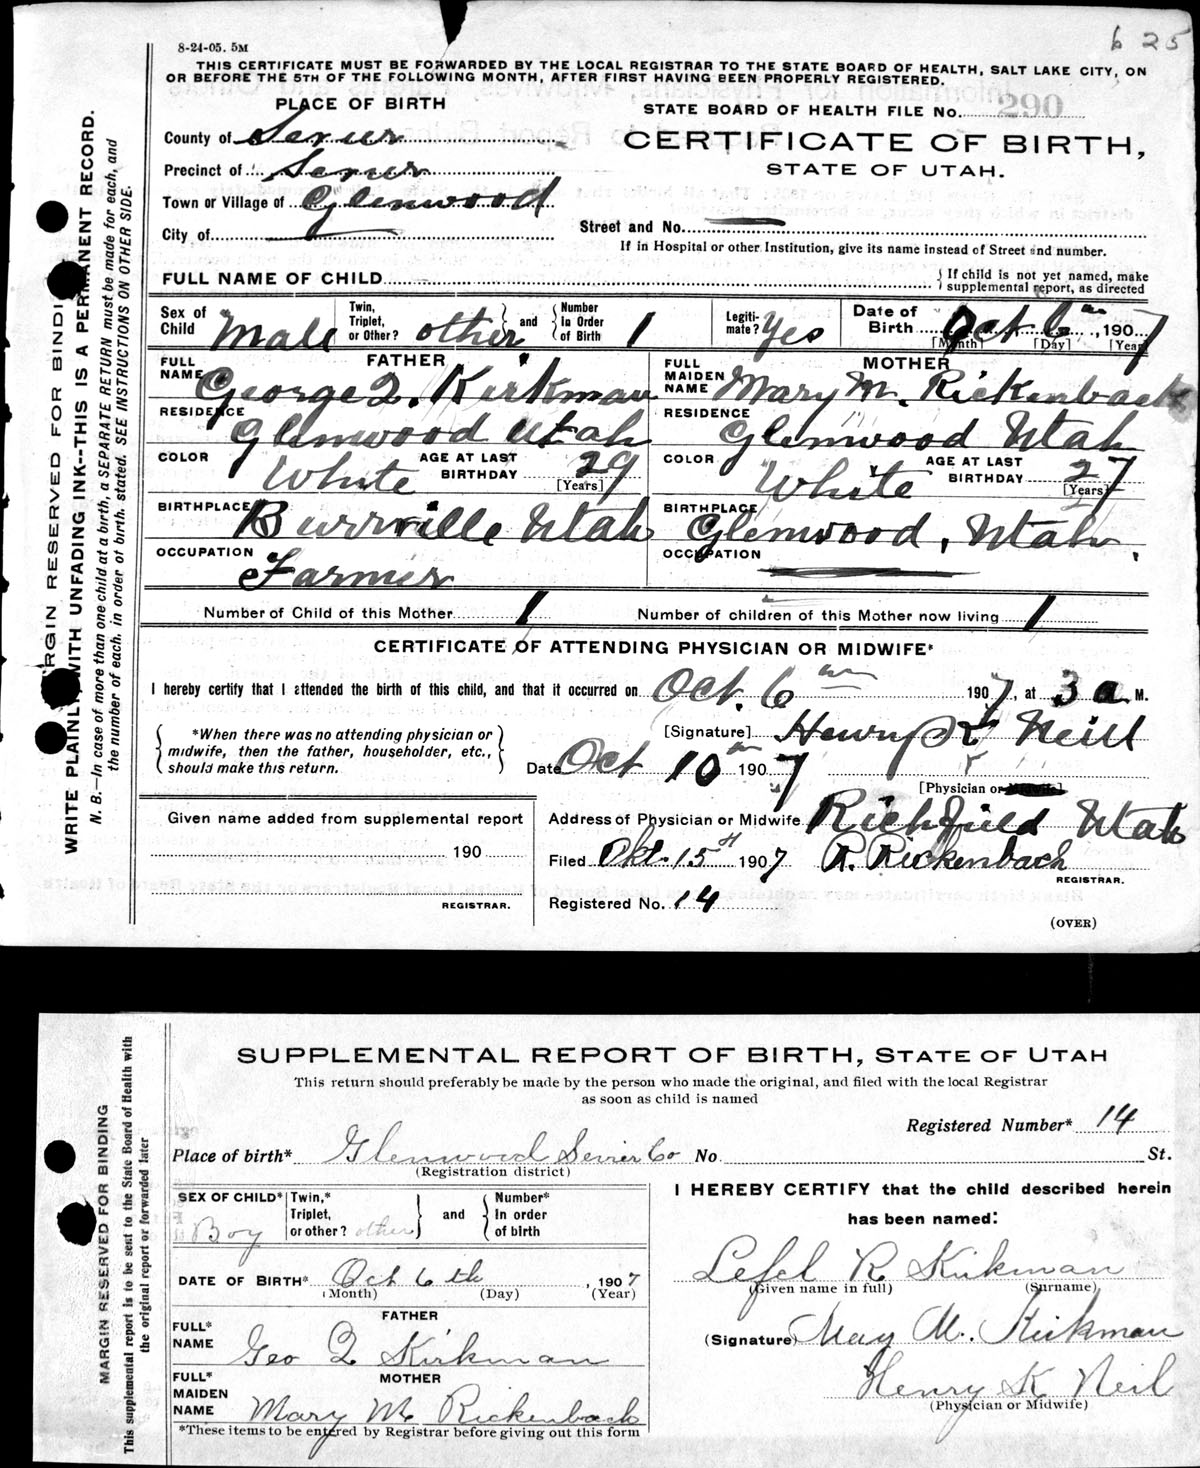 625
8-24-05. 5M
THIS CERTIFICATE MUST BE FORWARDED BY THE LOCAL REGISTRAR TO THE STATE BOARD OF HEALTH, SALT LAKE CITY, ON
OR BEFORE THE 5TH OF THE FOLLOWING MONTH, AFTER FIRST HAVING BEEN PROPERLY REGISTERED.
PLACE OF BIRTH
STATE BOARD OF HEALTH FILE No. 290
County of Sevier
CERTIFICATE OF BIRTH,
Precinct of Sevier
STATE OF UTAH.
Town or Village of Glenwood
City of
Street and No.
If in Hospital or other Institution, give its name instead of Street and number.
FULL NAME OF CHILD
If child is not yet named, make
supplemental report, as directed
Sex of Child Male Twin, Triplet, or Other? other and Number In Order of Birth 1 Legiti-mate? Yes Date of Birth Oct 6 , 1907
[Month] [Day] [Year]
FATHER
FULL NAME George Q. Kirkman
RESIDENCE Glenwood Utah
COLOR White AGE AT LAST BIRTHDAY 29 [Years]
BIRTHPLACE Burrville Utah
OCCUPATION Farmer
MOTHER
FULL MAIDEN NAME Mary M. Rickenback
RESIDENCE Glenwood Utah
COLOR White AGE AT LAST BIRTHDAY 27 [Years]
BIRTHPLACE Glenwood, Utah.
OCCUPATION
Number of Child of this Mother 1 Number of children of this Mother now living 1
CERTIFICATE OF ATTENDING PHYSICIAN OR MIDWIFE*
I hereby certify that I attended the birth of this child, and that it occurred on Oct. 6 1907, at 3 a M.
*When there was no attending physician or
midwife, then the father, householder, etc.,
should make this return.
[Signature] Henry K Neill
Date Oct 10 1907
[Physician or Midwife]
Given name added from supplemental report
190
REGISTRAR.
Address of Physician or Midwife Richfield Utah
Filed Okt. 15 1907 R. Rickenbach
REGISTRAR.
Registered No. 14
(OVER)
MARGIN RESERVED FOR BINDING
WRITE PLAINLY WITH UNFADING INK--THIS IS A PERMANENT RECORD.
N. B.—In case of more than one child at a birth, a SEPARATE RETURN must be made for each, and
the number of each. in order of birth. stated. SEE INSTRUCTIONS ON OTHER SIDE.
SUPPLEMENTAL REPORT OF BIRTH, STATE OF UTAH
This return should preferably be made by the person who made the original, and filed with the local Registrar
as soon as child is named
Registered Number* 14
Place of birth* Glenwood Sevier Co No. St.
(Registration district)
SEX OF CHILD* Boy Twin,* Triplet, or other? other and Number* In order of birth
DATE OF BIRTH* Oct 6th , 1907
(Month) (Day) (Year)
FATHER
FULL* NAME Geo Q Kirkman
MOTHER
FULL* MAIDEN NAME Mary M. Rickenback
*These items to be entered by Registrar before giving out this form
I HEREBY CERTIFY that the child described herein
has been named:
Lefel R Kirkman
(Given name in full) (Surname)
(Signature) May M. Kirkman
Henry K Neil
(Physician or Midwife)
MARGIN RESERVED FOR BINDING
This supplemental report is to be sent to the State Board of Health with
the original report or forwarded later